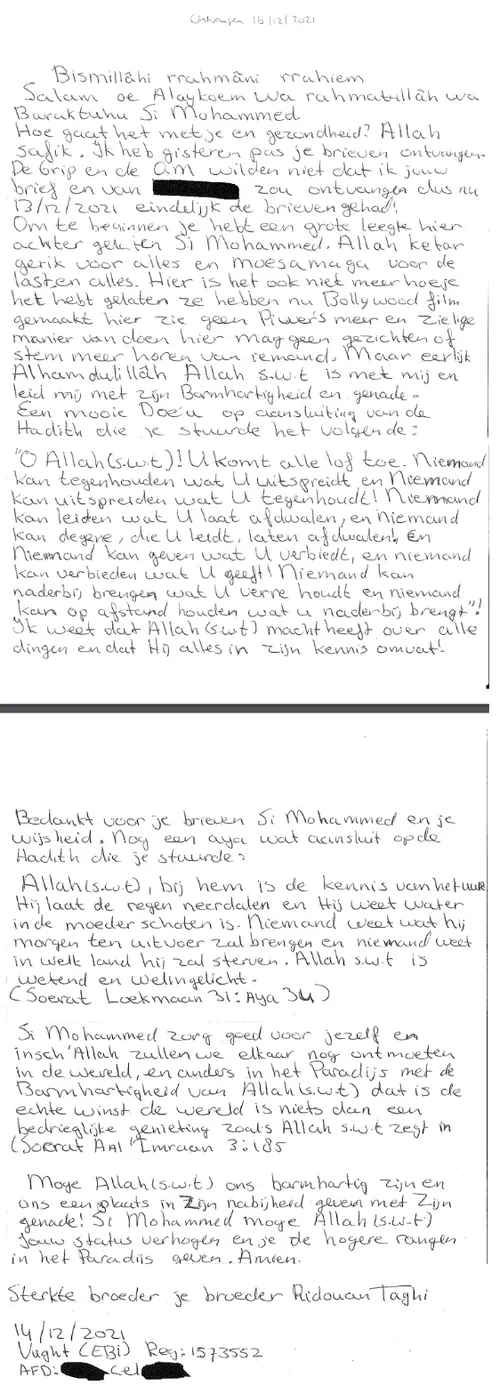 Ontvangen 16/12/2021
Bismillâhi rrahmâni rrahiem
Salam oe Alaykoem wa rahmatullâh wa
Baraktuhu Si Mohammed
Hoe gaat het met je en gezondheid? Allah
safik. Ik heb gisteren pas je brieven ontvangen.
De Grip en de OM wilden niet dat ik jouw
brief en van zou ontvangen dus nu
13/12/2021 eindelijk de brieven gehad!
Om te beginnen je hebt een grote leegte hier
achter gelaten Si Mohammed. Allah ketar
gerik voor alles en moesamaga voor de
lasten alles. Hier is het ook niet meer hoe je
het hebt gelaten ze hebben nu Bollywood film
gemaakt hier zie geen Piwer's meer en zielige
manier van doen hier mag geen gezichten of
stem meer horen van iemand. Maar eerlijk
Alhamdulillâh Allah s.w.t is met mij en
leid mij met zijn Barmhartigheid en genade.
Een mooie Doe'a op aansluiting van de
Hadith die je stuurde het volgende:
"O Allah (s.w.t)! U komt alle lof toe. Niemand
kan tegenhouden wat U uitspreidt en Niemand
kan uitspreiden wat U tegenhoudt! Niemand
kan leiden wat U laat afdwalen, en Niemand
kan degene, die U leidt, laten afdwalen! En
Niemand kan geven wat U verbiedt, en niemand
kan verbieden wat U geeft! Niemand kan
naderbij brengen wat U verre houdt en niemand
kan op afstand houden wat u naderbij brengt"!
Ik weet dat Allah (s.w.t) macht heeft over alle
dingen en dat Hij alles in zijn kennis omvat!
Bedankt voor je brieven Si Mohammed en je
wijsheid. Nog een aya wat aansluit op de
Hadith die je stuurde:
Allah (s.w.t), bij hem is de kennis van het uur.
Hij laat de regen neerdalen en Hij weet wat er
in de moeder schoten is. Niemand weet wat hij
morgen ten uitvoer zal brengen en niemand weet
in welk land hij zal sterven. Allah s.w.t is
wetend en welingelicht.
(Soerat Loekmaan 31: Aya 34)
Si Mohammed zorg goed voor jezelf en
insch'Allah zullen we elkaar nog ontmoeten
in de wereld, en anders in het Paradijs met de
Barmhartigheid van Allah (s.w.t) dat is de
echte winst de wereld is niets dan een
bedrieglijke genieting zoals Allah s.w.t zegt in
(Soerat Aal 'Imraan 3:185
Moge Allah (s.w.t) ons barmhartig zijn en
ons een plaats in Zijn nabijheid geven met Zijn
genade! Si Mohammed moge Allah (s.w.t)
jouw status verhogen en je de hogere rangen
in het Paradijs geven. Amien.
Sterkte broeder je broeder Ridouan Taghi
14/12/2021
Vught (EBI) Reg: 1573552
AFD: Cel